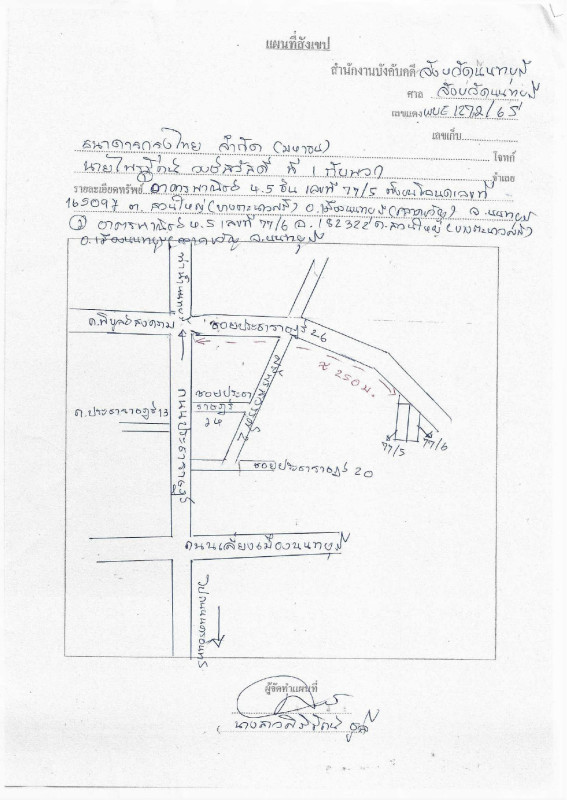 แผนที่สังเขป
สำนักงานบังคับคดี จังหวัดนนทบุรี
ศาล จังหวัดนนทบุรี
เลขแดง ผบE 1272/65
เลขเก็บ
ธนาคารกรุงไทย จำกัด (มหาชน) โจทก์
ที่ 1 กับพวก จำเลย
รายละเอียดทรัพย์ อาคารพาณิชย์ 4.5 ชั้น เลขที่ 77/5 ตั้งบนโฉนดเลขที่
165097 ต. สวนใหญ่ (บางตะนาวศรี) อ. เมืองนนทบุรี (ตลาดขวัญ) จ. นนทบุรี
② อาคารพาณิชย์ 4.5 เลขที่ 77/6 ฉ. 182322 ต. สวนใหญ่ (บางตะนาวศรี)
อ. เมืองนนทบุรี (ตลาดขวัญ) จ. นนทบุรี
ท่าน้ำนนทบุรี
ถ.พิบูลสงคราม
ซอยประชาราษฎร์ 26
≈ 250 ม.
ซอยประชา
ราษฎร์
24
ถ.ประชาราษฎร์ 13
ถนนประชาราษฎร์
77/5
77/6
ซอยประชาราษฎร์ 20
ถนนเลี่ยงเมืองนนทบุรี
ผู้จัดทำแผนที่